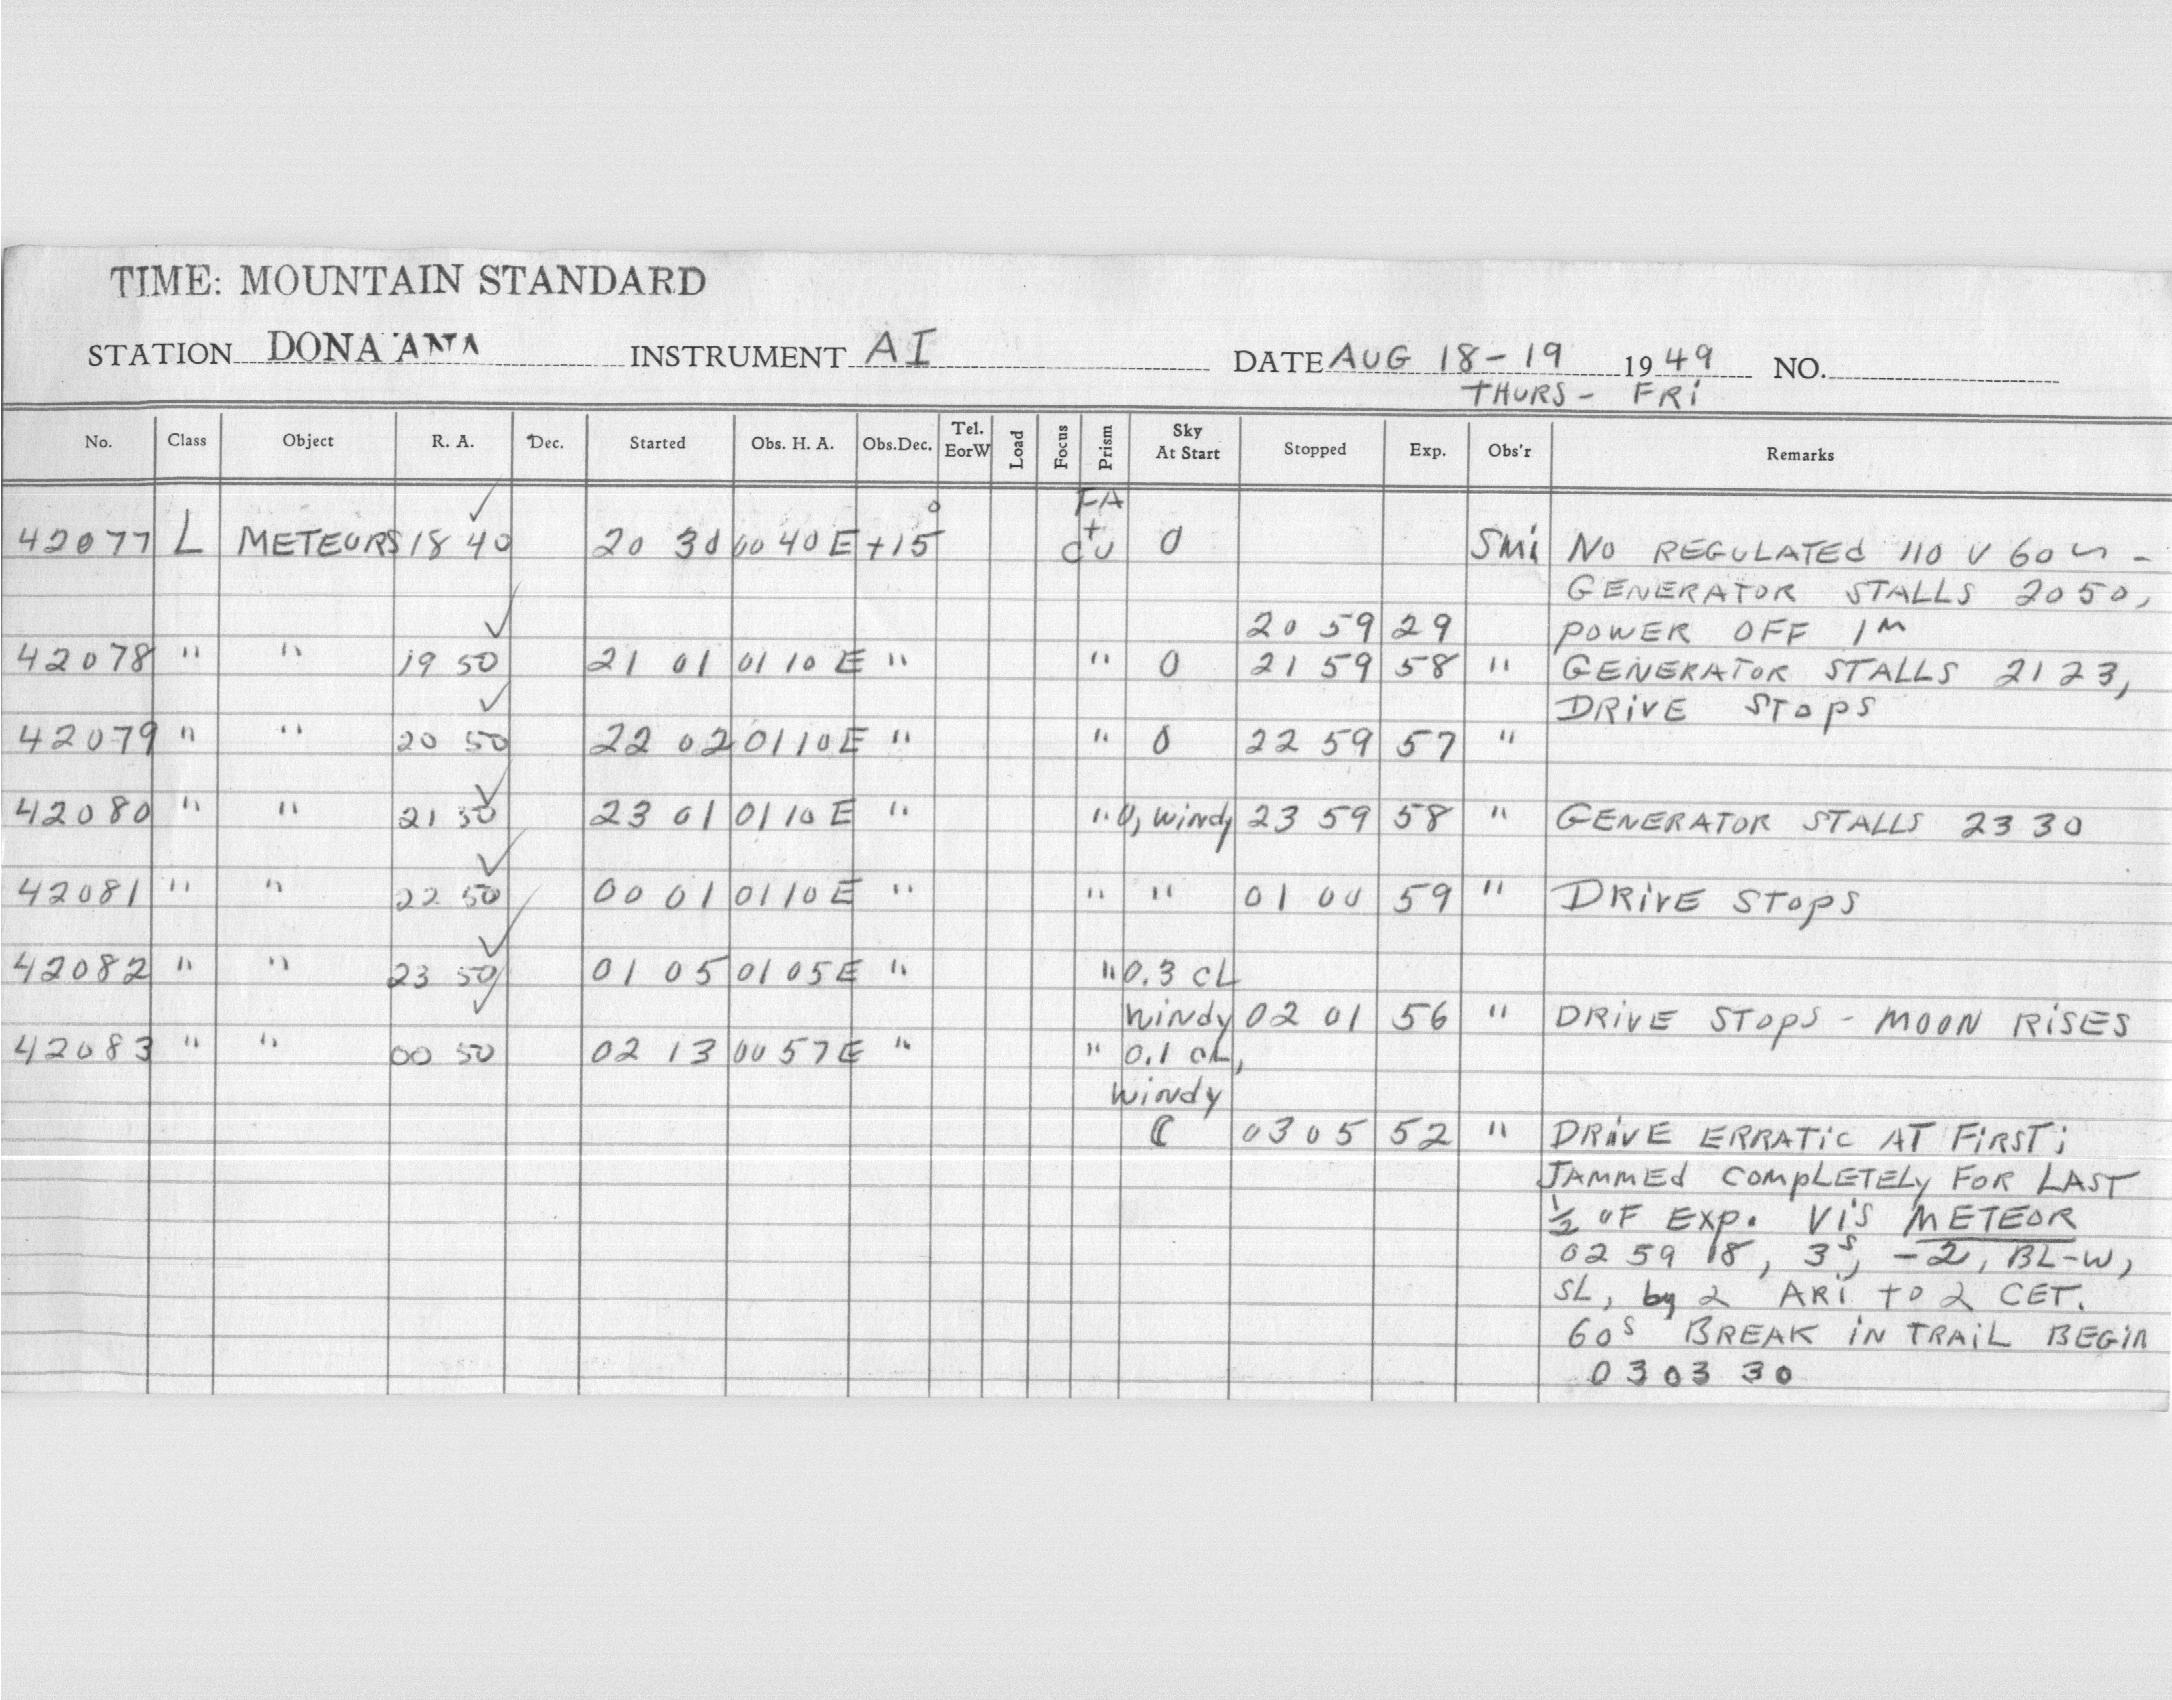 TIME: MOUNTAIN STANDARD
STATION DONA ANA INSTRUMENT AI DATE AUG 18-19 1949 NO.
THURS - FRI
No. Class Object R. A. Dec. Started Obs. H. A. Obs.Dec. Tel. EorW Load Focus Prism Sky At Start Stopped Exp. Obs'r Remarks
42077 L METEORS 18 40 20 30 00 40 E +15° FA + CU 0 Smi NO REGULATED 110 V 60 ~ -
GENERATOR STALLS 2050,
20 59 29 POWER OFF 1M
42078 " " 19 50 21 01 01 10 E " " 0 21 59 58 " GENERATOR STALLS 2123,
DRIVE STOPS
42079 " " 20 50 22 02 01 10 E " " 0 22 59 57 "
42080 " " 21 50 23 01 01 10 E " " 0, windy 23 59 58 " GENERATOR STALLS 23 30
42081 " " 22 50 00 01 01 10 E " " " 01 00 59 " DRIVE STOPS
42082 " " 23 50 01 05 01 05 E " " 0.3 CL
windy 02 01 56 " DRIVE STOPS - MOON RISES
42083 " " 00 50 02 13 00 57 E " " 0.1 CL,
windy
☾ 03 05 52 " DRIVE ERRATIC AT FIRST;
JAMMED COMPLETELY FOR LAST
1/2 OF EXP. VIS METEOR
02 59 18, 3s, -2, BL-W,
SL, by 2 ARI TO 2 CET.
60s BREAK IN TRAIL BEGIN
03 03 30